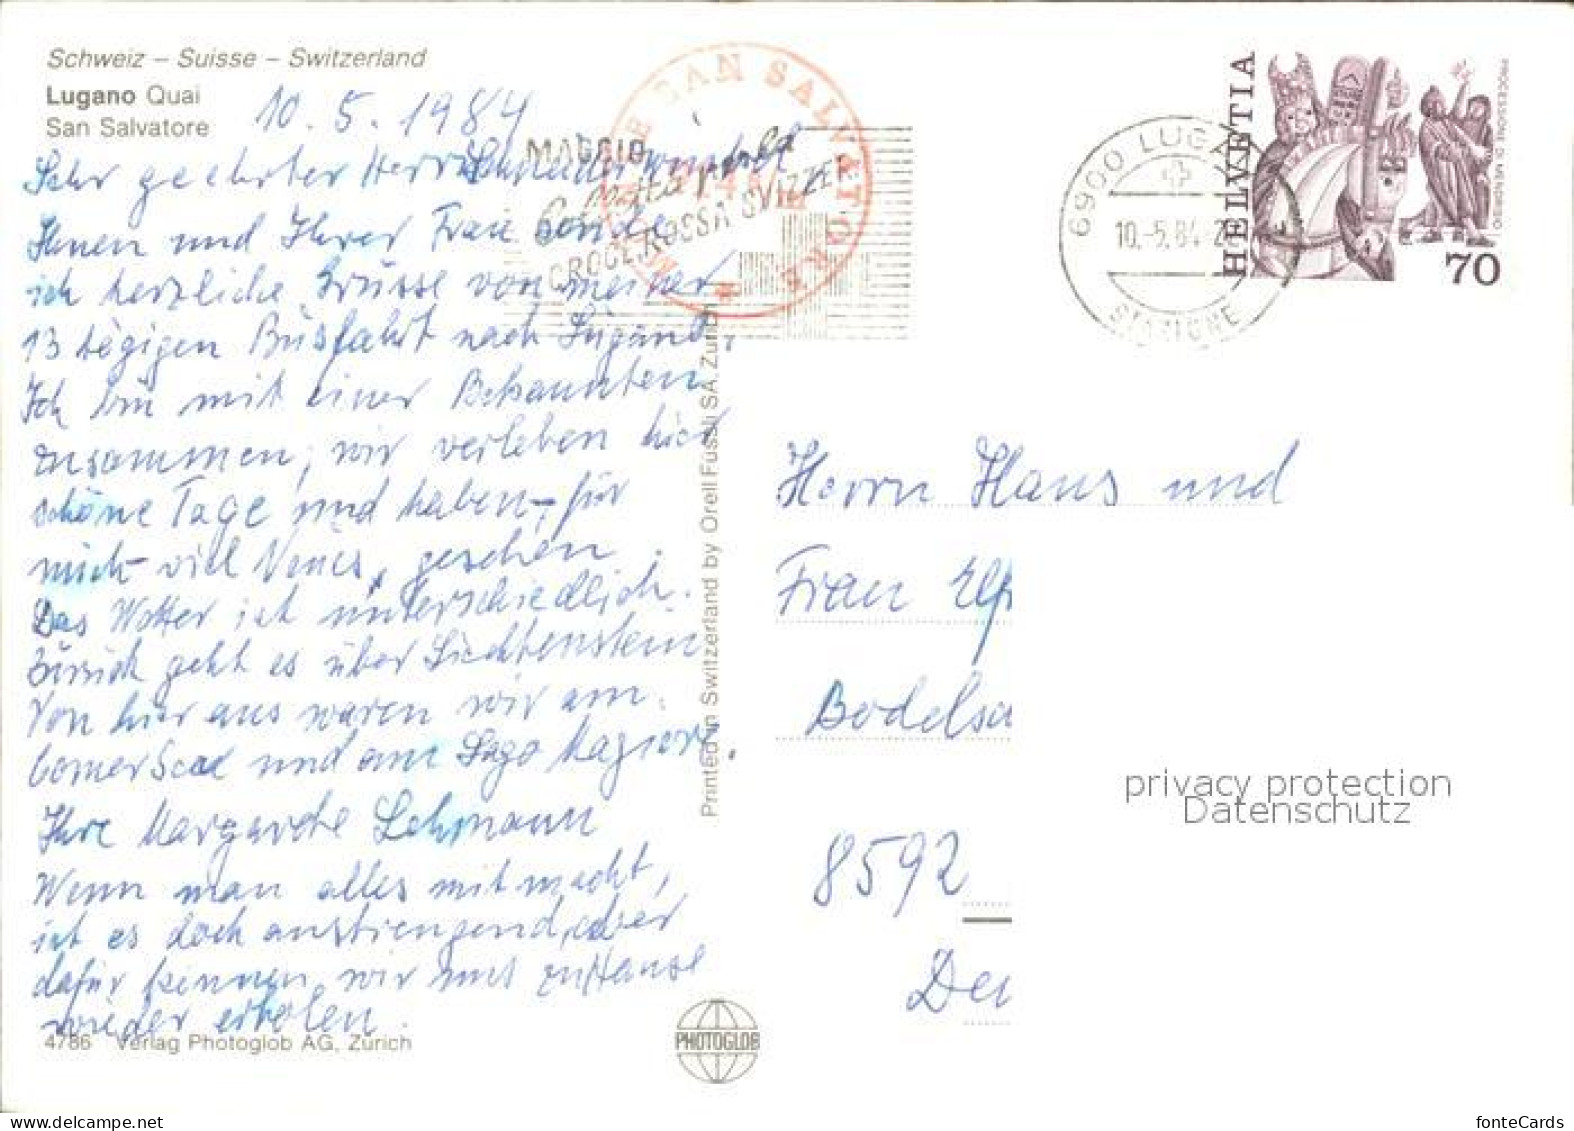 Schweiz – Suisse – Switzerland
Lugano Quai
San Salvatore
10.5.1984
Sehr geehrter Herr
Ihnen und Ihrer Frau sende
ich herzliche Grüsse von meiner
13 tägigen Busfahrt nach Lugano.
Ich bin mit einer Bekannten
zusammen, wir verleben hier
schöne Tage und haben – für
mich – viel Neues gesehen.
Das Wetter ist unterschiedlich.
Zurück geht es über Lichtenstein
Von hier aus waren wir am
Comer See und am Lago Magiore.
Ihre Margarete Lehmann
Wenn man alles mitmacht,
ist es doch anstrengend, aber
dafür können wir uns zu Hause
wieder erholen.
4786 Verlag Photoglob AG, Zürich
MAGGIO
CROCE ROSSA SVIZZERA
MONTE SAN SALVATORE
Printed in Switzerland by Orell Füssli SA, Zürich
PHOTOGLOB
6900 LUGANO
10.-5.84
HELVETIA
PROCESSIONE DI MENDRISIO
70
Herrn Hans und
Frau Elf
Bodelsa
8592
De
privacy protection
Datenschutz
delcampe.net
fonteCards